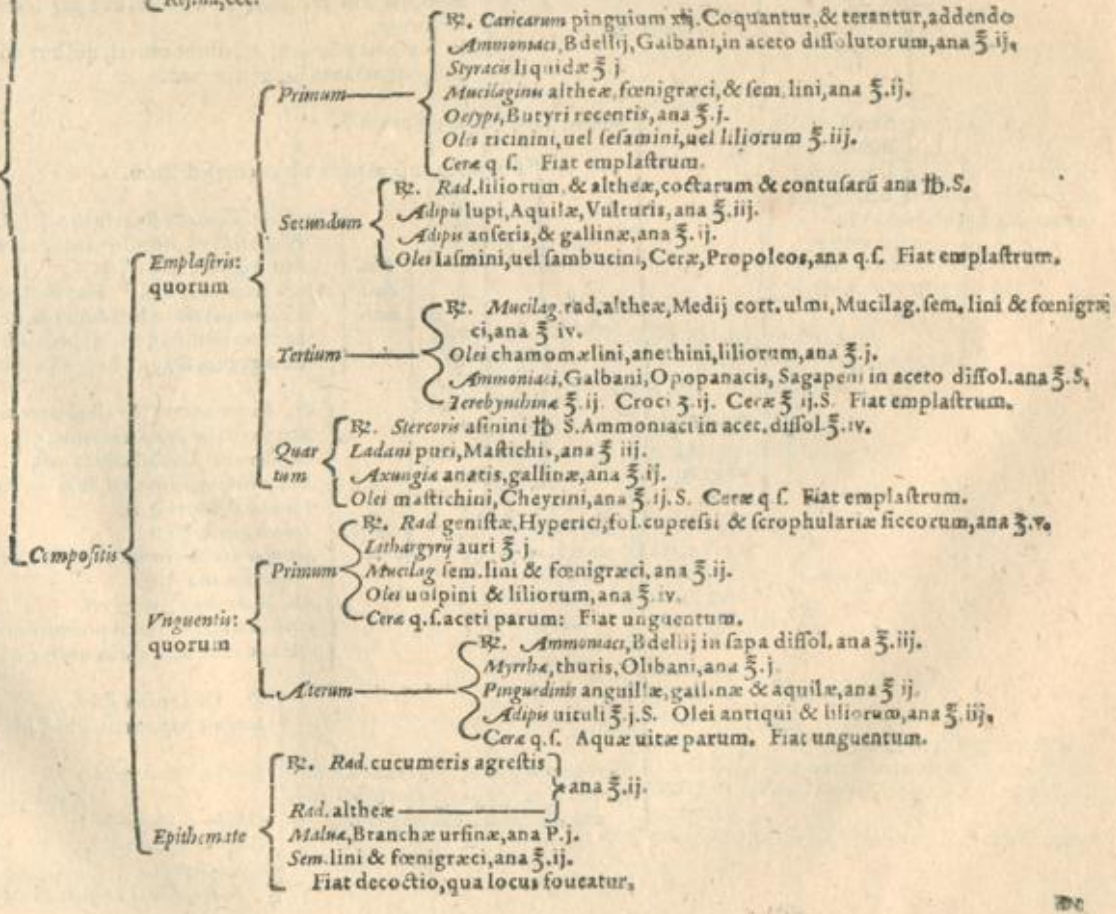 Resina, &c.
℞. Caricarum pinguium xij. Coquantur, & terantur, addendo
Ammoniaci, Bdellij, Galbani, in aceto dissolutorum, ana ℥ ij.
Styracis liquidæ ℥ j
Primum
Mucilaginis altheæ, fœnigræci, & sem. lini, ana ℥.ij.
Oesypi, Butyri recentis, ana ℥.j.
Olei ricinini, uel sesamini, uel liliorum ℥.iij.
Ceræ q s. Fiat emplastrum.
℞. Rad. liliorum & altheæ, coctarum & contusarũ ana ℔.S.
Secundum
Adipis lupi, Aquilæ, Vulturis, ana ℥.iij.
Adipis anseris, & gallinæ, ana ℥.ij.
Olei Iasmini, uel sambucini, Ceræ, Propoleos, ana q.s. Fiat emplastrum.
Emplastris:
quorum
℞. Mucilag. rad. altheæ, Medij cort. ulmi, Mucilag. sem. lini & fœnigræ
ci, ana ℥ iv.
Tertium
Olei chamomælini, anethini, liliorum, ana ℥.j.
Ammoniaci, Galbani, Opopanacis, Sagapeni in aceto dissol. ana ℥.S.
Terebynthinæ ℥.ij. Croci ʒ.ij. Ceræ ℥ ij.S. Fiat emplastrum.
℞. Stercoris asinini ℔ S. Ammoniaci in acet. dissol. ℥.iv.
Quar
tum
Ladani puri, Mastichis, ana ℥ iij.
Axungiæ anatis, gallinæ, ana ℥.ij.
Olei mastichini, Cheyrini, ana ℥.ij.S. Ceræ q s. Fiat emplastrum.
Compositis
℞. Rad genistæ, Hyperici, fol. cupressi & scrophulariæ siccorum, ana ʒ.v.
Lithargyrij auri ℥.j
Primum
Mucilag sem. lini & fœnigræci, ana ℥.ij.
Olei uolpini & liliorum, ana ℥.iv.
Ceræ q.s. aceti parum: Fiat unguentum.
Vnguentis:
quorum
℞. Ammoniaci, Bdellij in sapa dissol. ana ℥.iij.
Myrrhæ, thuris, Olibani, ana ℥.j.
Alterum
Pinguedinis anguillæ, gallinæ & aquilæ, ana ℥ ij.
Adipis uituli ℥.j.S. Olei antiqui & liliorum, ana ℥.iij.
Ceræ q.s. Aquæ uitæ parum. Fiat unguentum.
℞. Rad. cucumeris agrestis
ana ℥.ij.
Rad. altheæ
Epithemate
Maluæ, Branchæ ursinæ, ana P.j.
Sem. lini & fœnigræci, ana ℥.ij.
Fiat decoctio, qua locus foueatur.